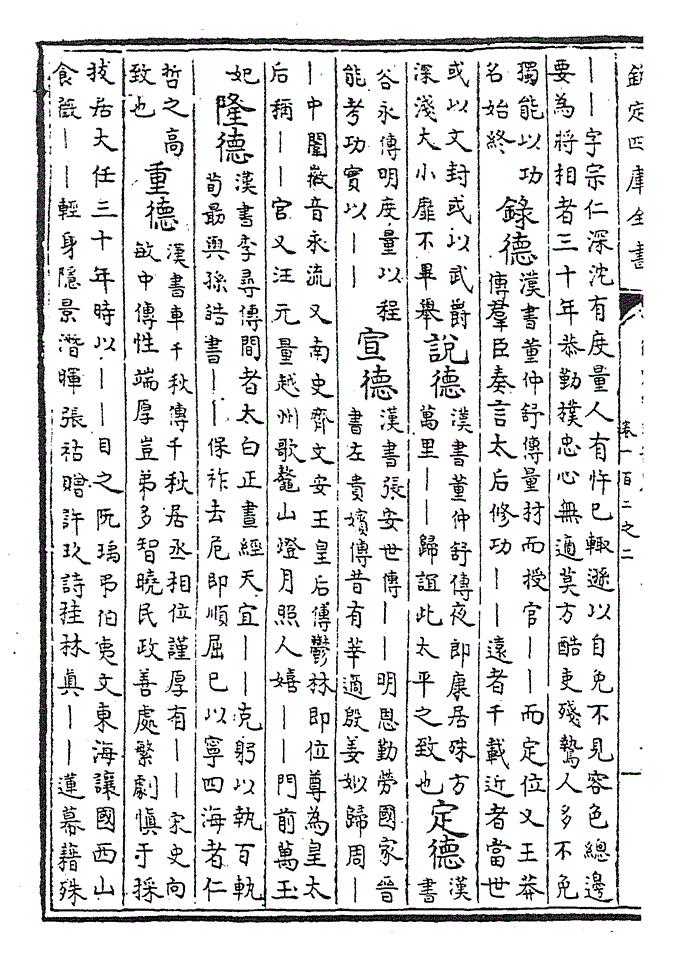 欽定四庫全書
卷一百二之二
——字宗仁深沈有度量人有忤已輙遜以自免不見容色總邊
要為將相者三十年恭勤撲忠心無適莫方酷吏殘鷙人多不免
獨能以功
名始終
錄德
漢書董仲舒傳量材而授官——而定位又王莽
傳羣臣奏言太后修功——遠者千載近者當世
或以文封或以武爵
深淺大小靡不畢舉
說德
漢書董仲舒傳夜郎康居殊方
萬里——歸誼此太平之致也
定德
漢
書
谷永傳明度量以程
能考功實以——
宣德
漢書張安世傳——明恩勤勞國家晉
書左貴嬪傳昔有莘適殷姜姒歸周—
—中闈徽音永流又南史齊文安王皇后傳鬱林即位尊為皇太
后稱——宮又汪元量越州歌鼇山燈月照人嬉——門前萬玉
妃
隆德
漢書李尋傳間者太白正晝經天宜——克躬以執百軌
荀勗與孫皓書——保祚去危即順屈已以寧四海者仁
哲之高
致也
重德
漢書車千秋傳千秋居丞相位謹厚有——宋史向
敏中傳性端厚豈弟多智曉民政善處繁劇慎于採
拔居大任三十年時以——目之阮瑀弔伯夷文東海讓國西山
食薇——輕身隱景潛暉張祜贈許玖詩桂林真——蓮幕藉殊